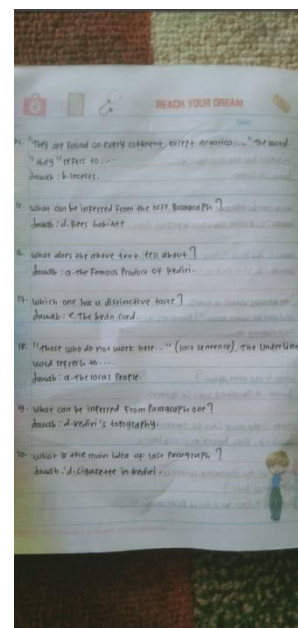 REACH YOUR DREAM
Date
14. "They are found on every continent except Antartica....." The word.
"they" refers to .....
Jawab : b. Insects.
15. What can be inferred from the last Paragraph ?
Jawab : d. Bees habitat
16. What does the above text tell about ?
Jawab : a. the Famous Product of Kediri.
17. Which one has a distinctive taste ?
Jawab : e. The bean curd.
18. "Those who do not work here..." (last sentence). The Underline
word refresh to .....
Jawab : a. the local People.
19. What can be inferred From Paragraph one ?
Jawab : d. kediri's totography.
20. What is the main idea of last Paragraph ?
Jawab : d. Cigarette in kediri.